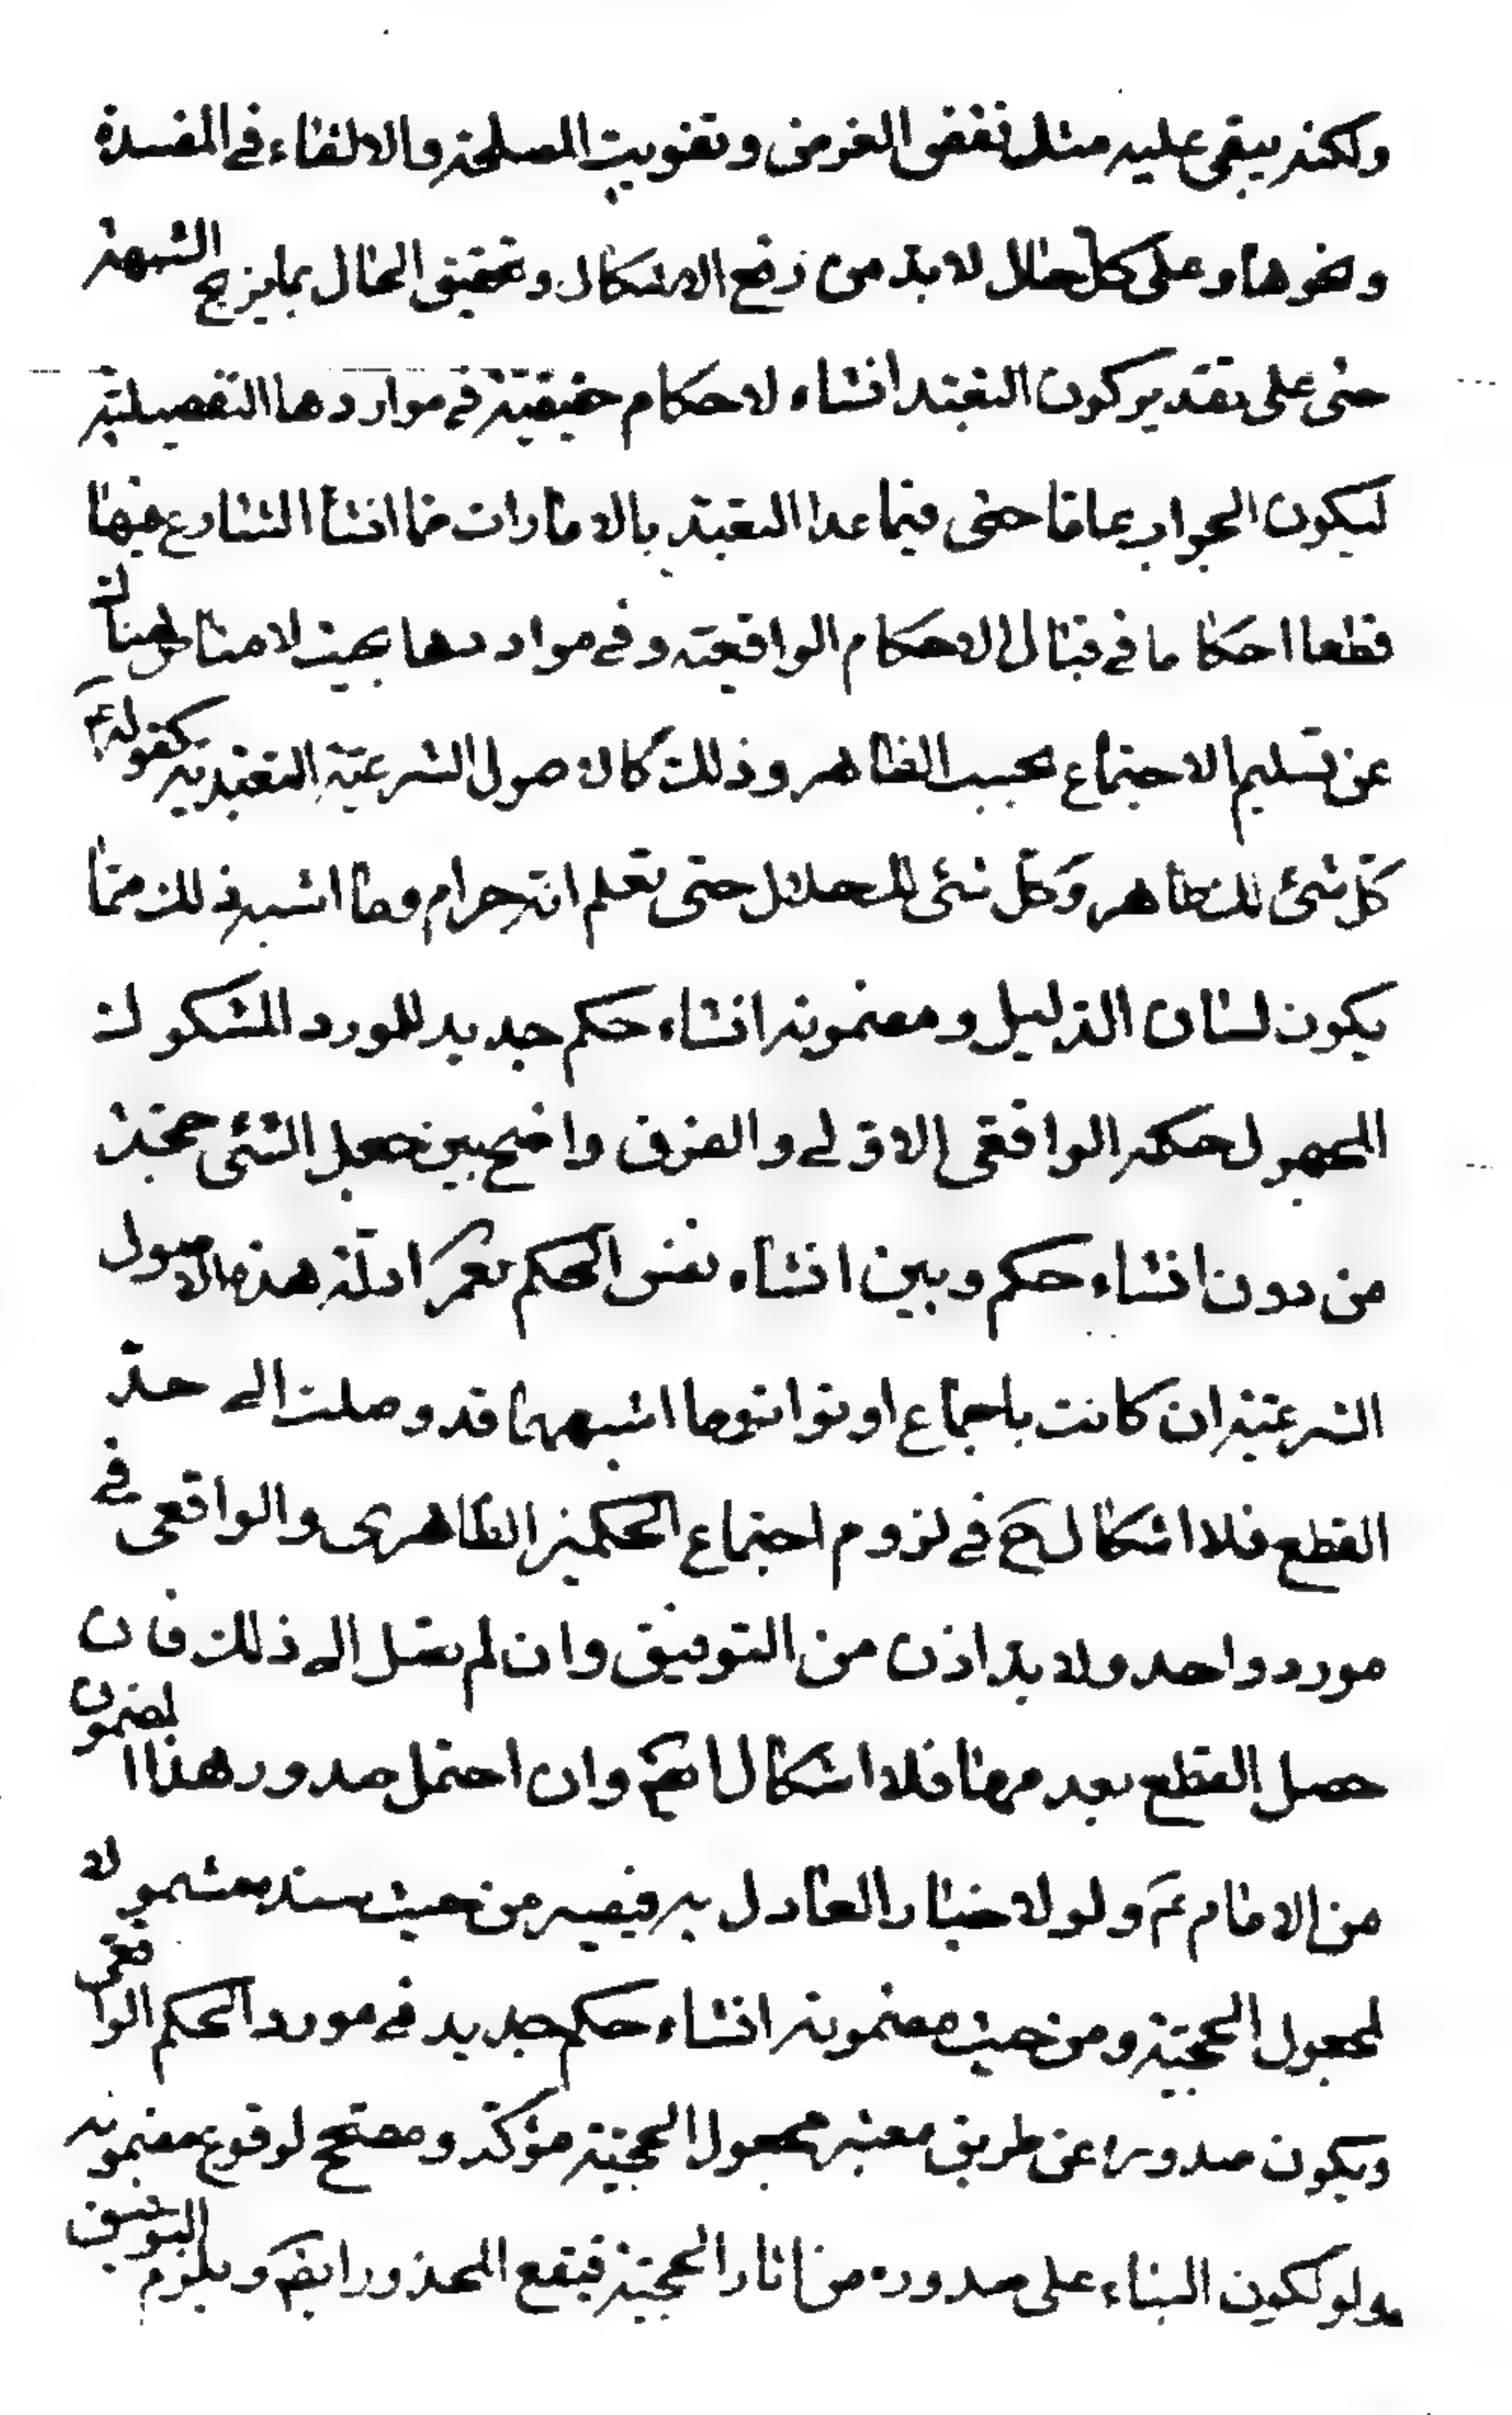 ولكنه يبقى عليه مثل نقض الغرض وتفويت المصلحة والالقاء في المفسدة
ونحوها وعلى كل حال لا بد من رفع الاشكال وتحقيق الحال بما يزيح الشبهة
حتى على تقدير كون التعبد انشاء لاحكام حقيقية في مواردها التفصيلية
ليكون الجواب عاما حتى فيما عدا التعبد بالامارات مما انشأ الشارع فيها
قطعا احكاما في قبال الاحكام الواقعية وفي مواردها بحيث لا مناص هناك
عن تسليم الاجتماع بحسب الظاهر وذلك كالاصول الشرعية التعبدية كقوله ع
كل شئ لك طاهر وكل شئ لك حلال حتى تعلم انه حرام وما اشبه ذلك مما
يكون لسان الدليل ومضمونه انشاء حكم جديد للمورد المشكوك
المجهول حكمه الواقعي الاولي والفرق واضح بين جعل الشئ حجة
من دون انشاء حكم وبين انشاء نفس الحكم نعم ادلة هذه الاصول
الشرعية ان كانت باجماع او تواتر وما اشبههما قد وصلت الى حد
القطع فلا اشكال ح في لزوم اجتماع الحكمين الظاهري والواقعي في
مورد واحد ولا بد اذن من التوفيق وان لم تصل الى ذلك فان
حصل القطع بعدمها فلا اشكال ايضا وان احتمل صدور هذا المضمون
من الامام ع ولو لاخبار العادل به فيصير من حيث سنده مشمولا
لمجعول الحجية ومن حيث مضمونه انشاء حكم جديد في مورد الحكم الواقعي
ويكون صدوره عن طريق معتبر مجعول الحجية مؤكد ومصحح لوقوع مضمونه
ولو لكون البناء على صدوره من اثار الحجية فيقع المحذور ايضا ويلزم التوفيق